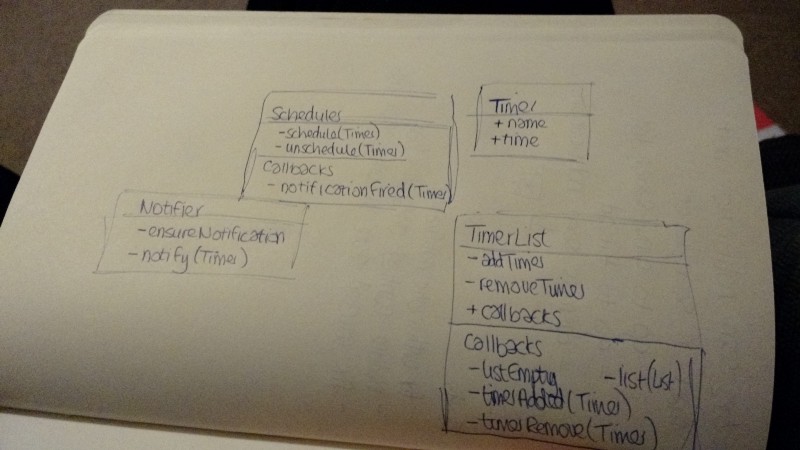 Scheduler
-schedule(Timer)
-unschedule(Timer)
Callbacks
-notificationFired(Timer)
Timer
+name
+time
Notifier
-ensureNotification
-notify(Timer)
TimerList
-addTimer
-removeTimer
+callbacks
Callbacks
-listEmpty -list(List)
-timerAdded(Timer)
-timerRemove(Timer)